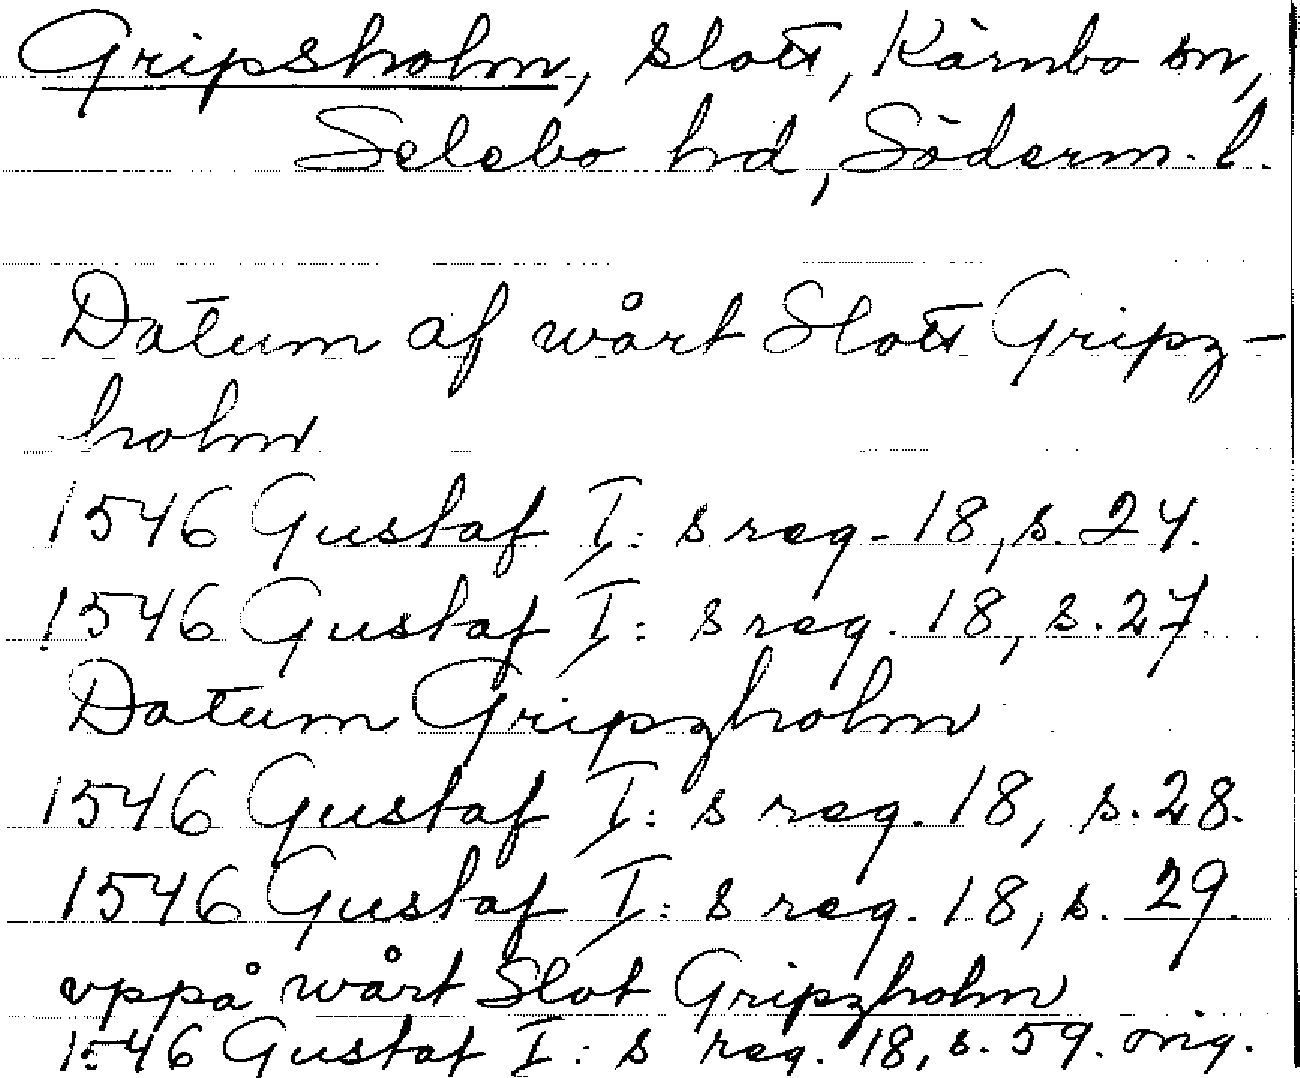 Gripsholm, slott, Kärnbo sn,
Selebo hd, Söderm. l.
Datum af wårt Slott Gripz-
holm
1546 Gustaf I: s reg. 18, s. 24.
1546 Gustaf I: s reg. 18, s. 27.
Datum Gripzholm
1546 Gustaf I: s reg. 18, s. 28.
1546 Gustaf I: s reg. 18, s. 29.
vppå wårt Slot Gripzholm
1546 Gustaf I: s reg. 18, s. 59. orig.